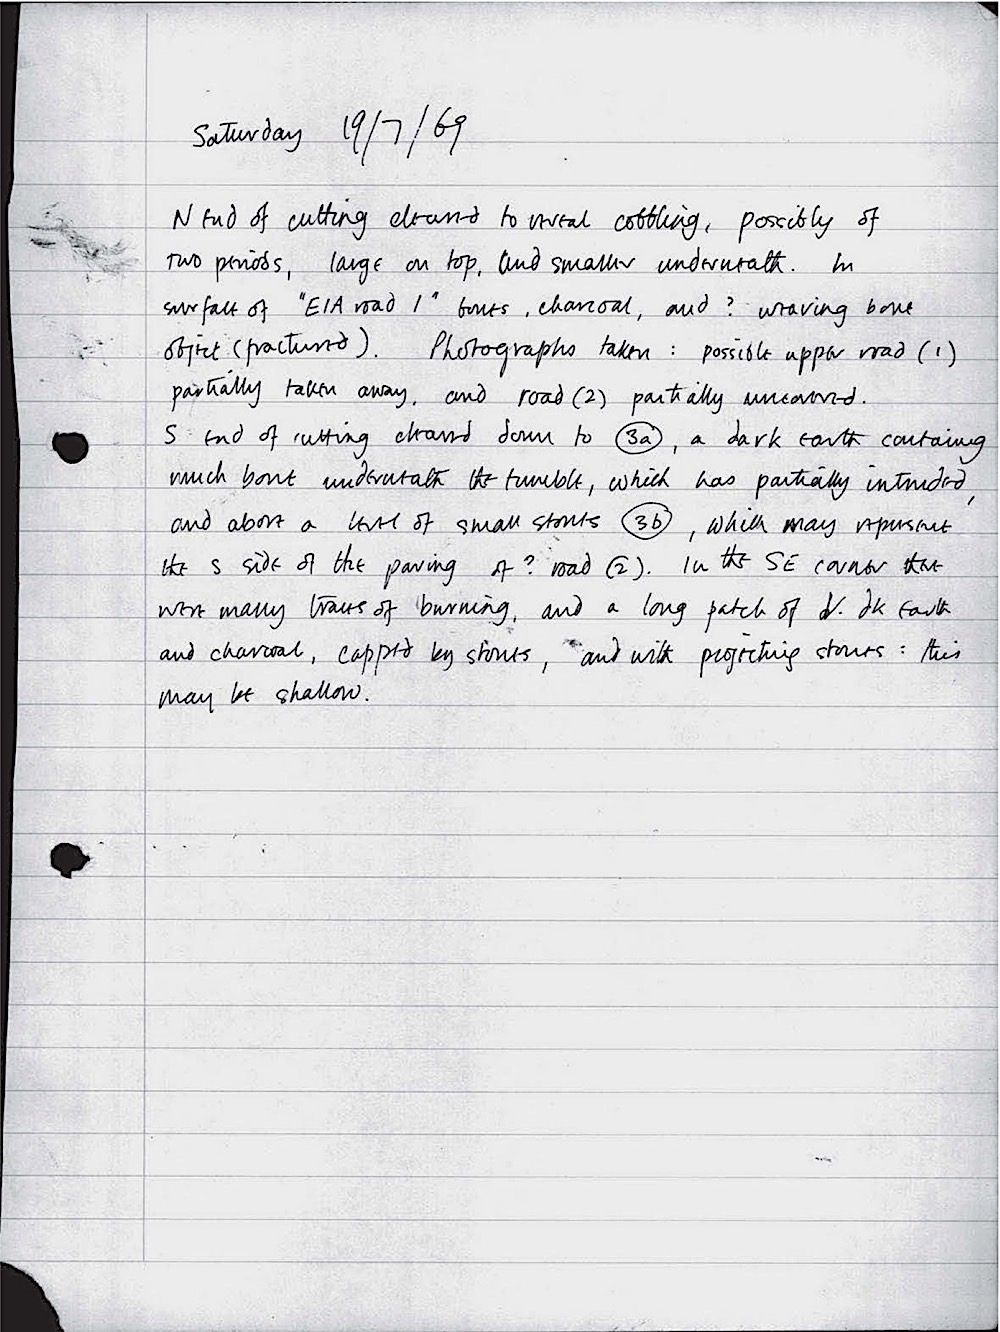 Saturday 19/7/69
N End of cutting cleaned to reveal cobbling, possibly of
two periods, large on top, and smaller underneath. In
surface of "EIA road 1" bones, charcoal, and ? weaving bone
object (fractured). Photographs taken : possible upper road (1)
partially taken away, and road (2) partially uncovered.
S End of cutting cleaned down to (3a), a dark Earth containing
much bone underneath the tumble, which has partially intruded,
and above a level of small stones (3b), which may represent
the S side of the paving of ? road (2). In the SE corner there
were many traces of burning, and a long patch of v. dk Earth
and charcoal, capped by stones, and with projecting stones : this
may be shallow.